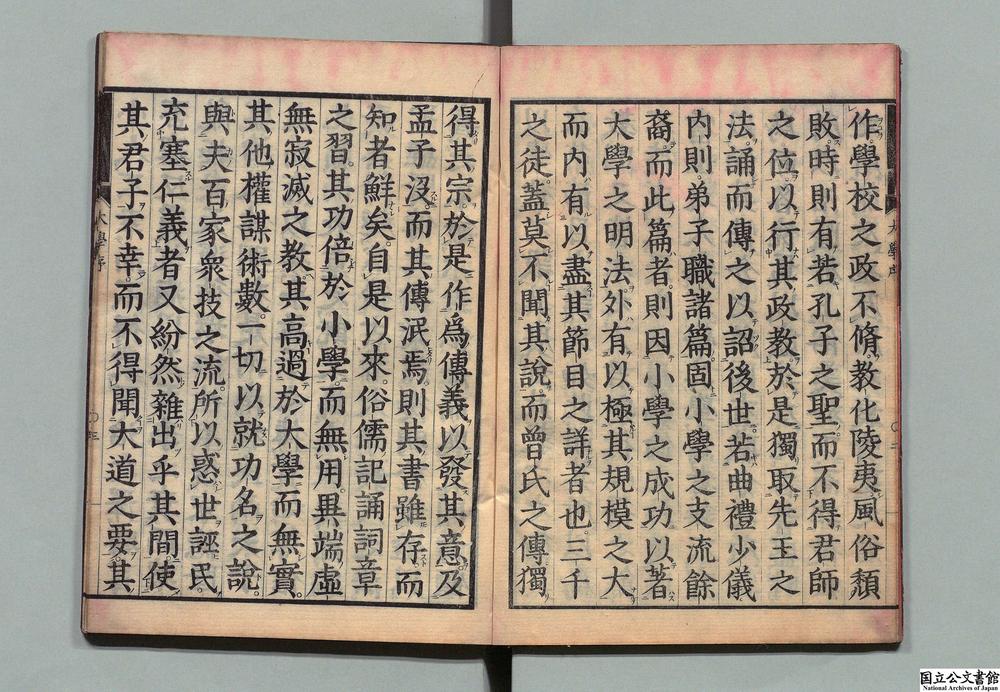 作學校之政不脩教化陵夷風俗頽
敗時則有若孔子之聖而不得君師
之位以行其政教於是獨取先王之
法誦而傳之以詔後世若曲禮少儀
内則弟子職諸篇固小學之支流餘
裔而此篇者則因小學之成功以著
大學之明法外有以極其規模之大
而内有以盡其節目之詳者也三千
之徒蓋莫不聞其說而曾氏之傳獨
得其宗於是作爲傳義以發其意及
孟子沒而其傳泯焉則其書雖存而
知者鮮矣自是以來俗儒記誦詞章
之習其功倍於小學而無用異端虛
無寂滅之教其高過於大學而無實
其他權謀術數一切以就功名之說
與夫百家衆技之流所以惑世誣民
充塞仁義者又紛然雜出乎其間使
其君子不幸而不得聞大道之要其
大學序
大學序
国立公文書館
National Archives of Japan